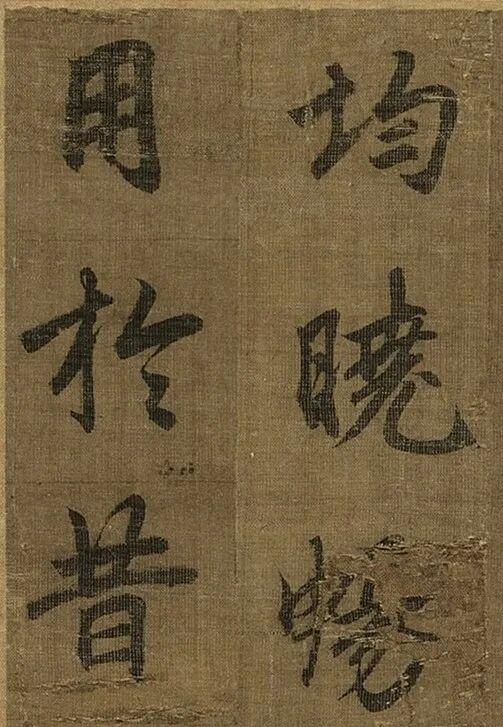 均曉晚
用於昔